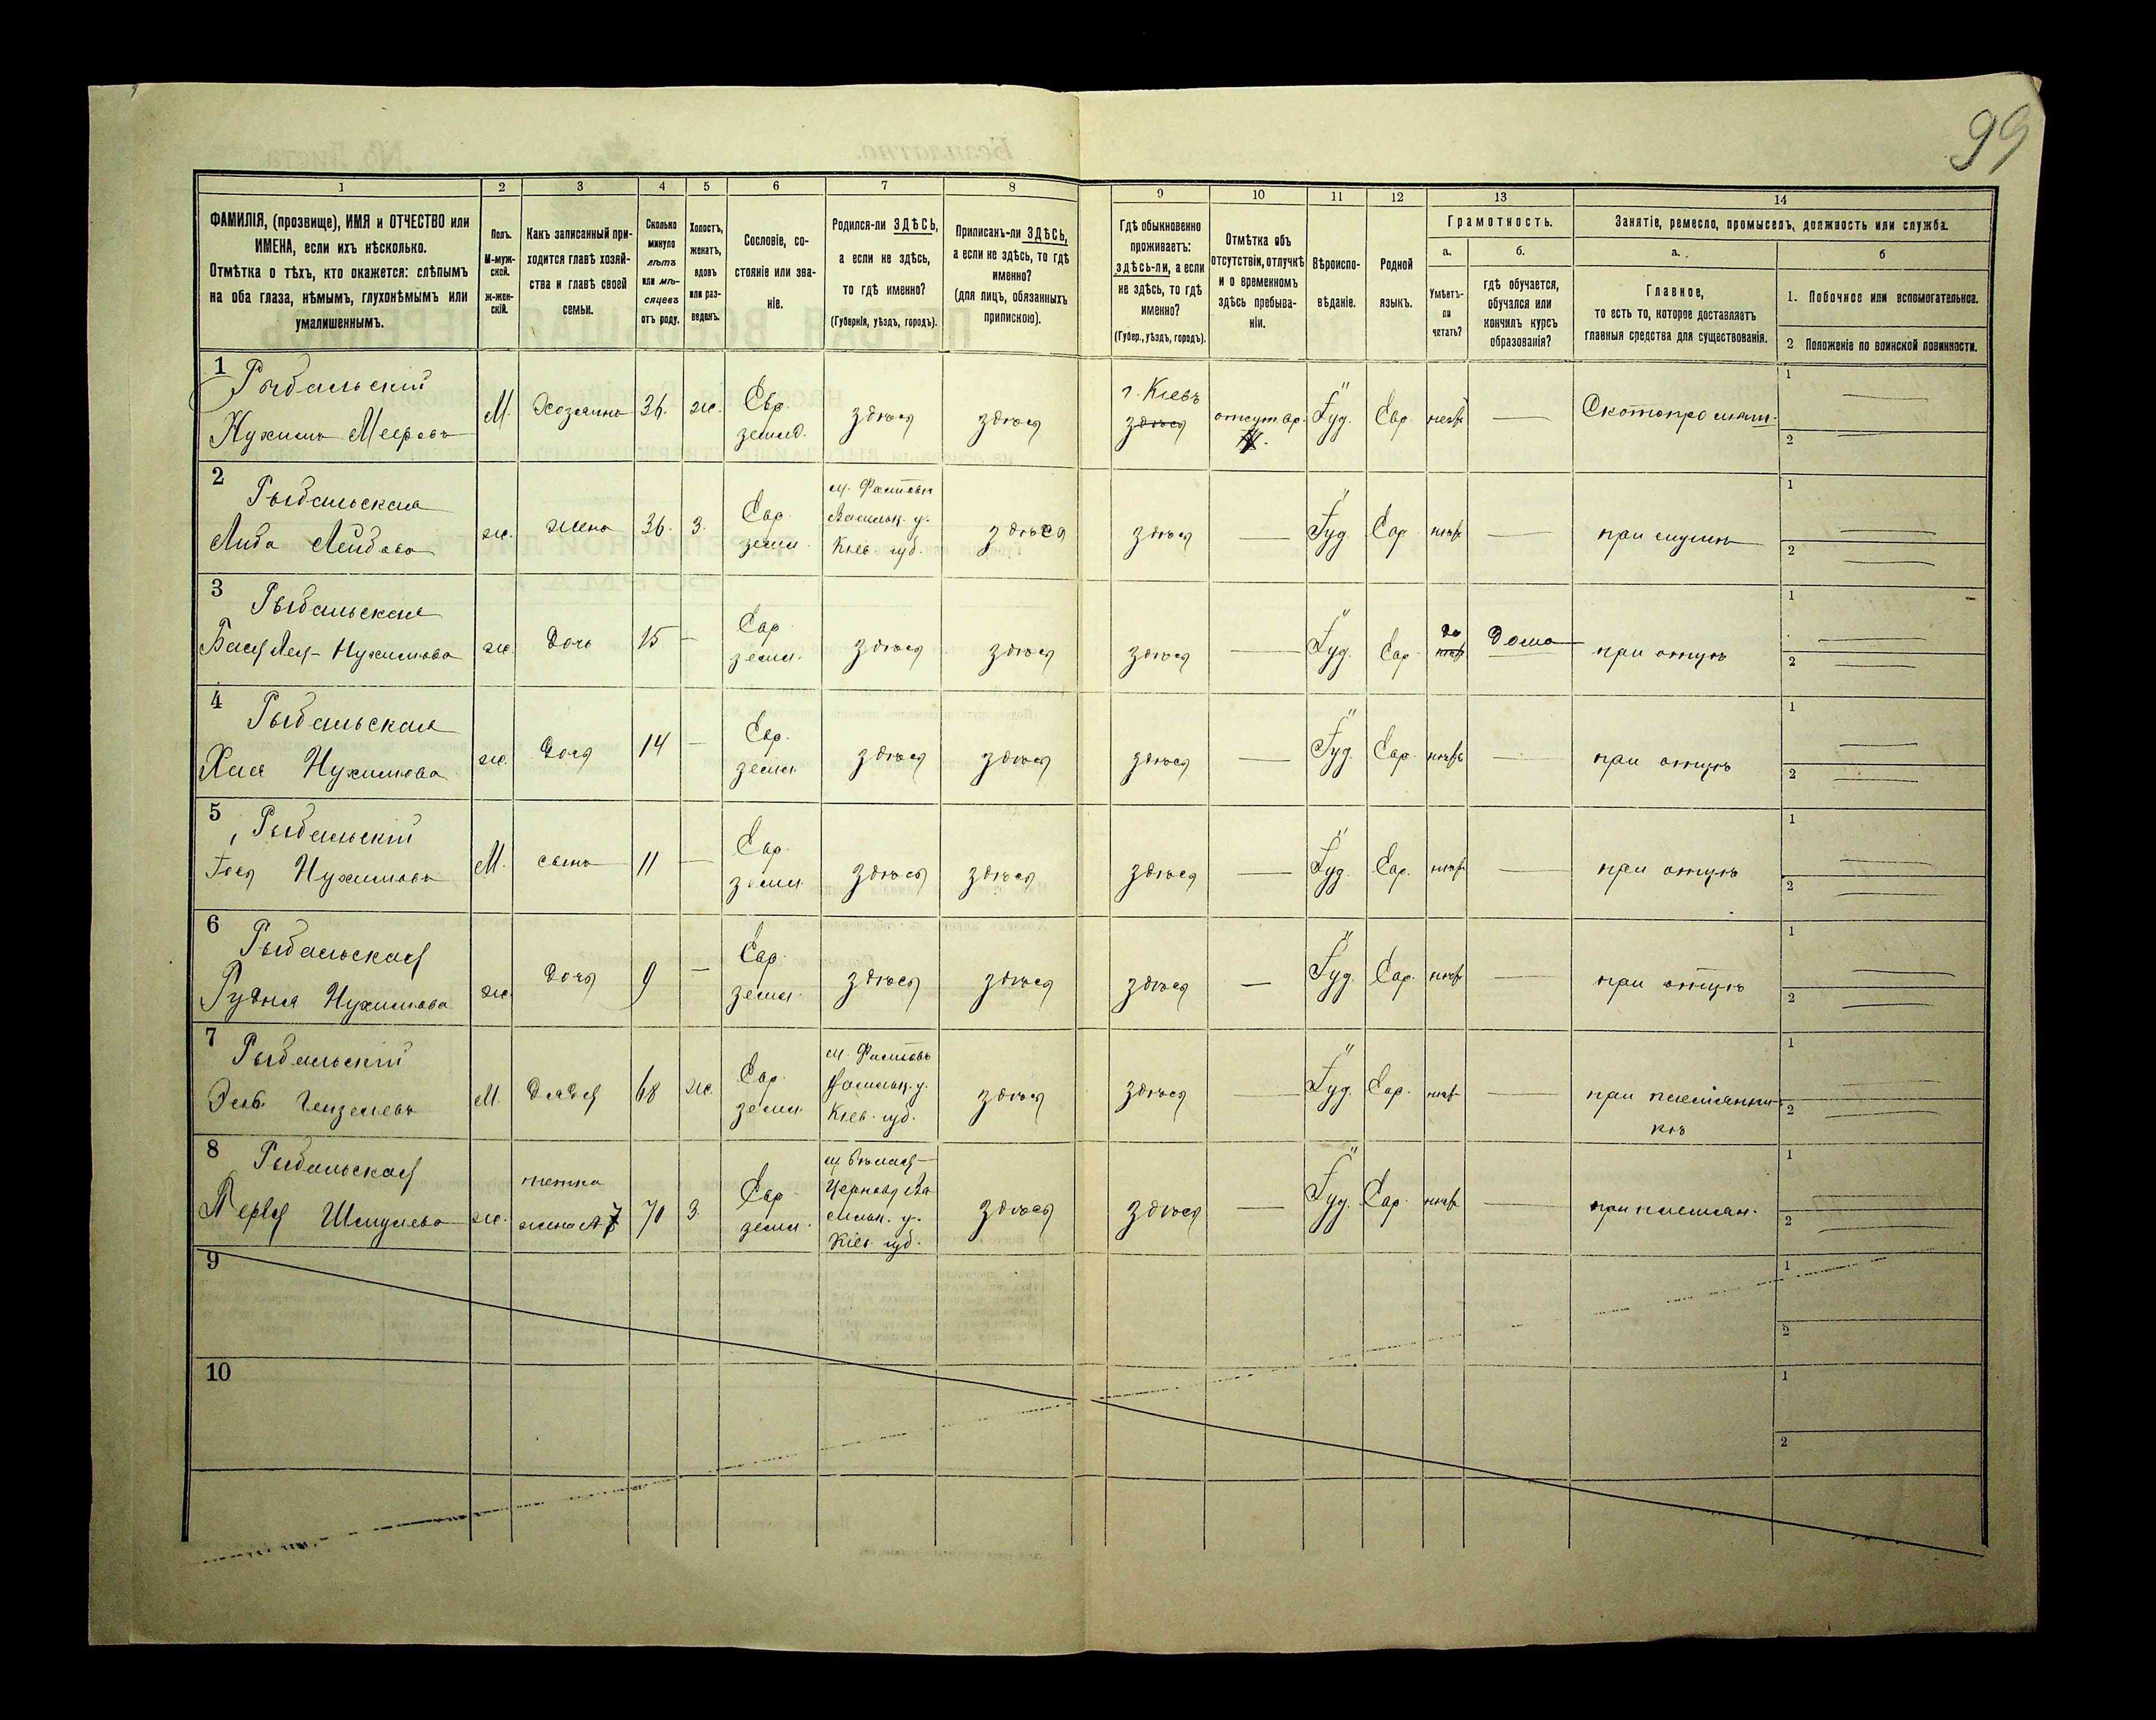 99
1 2 3 4 5 6 7 8 9 10 11 12 13 14
ФАМИЛІЯ, (прозвище), ИМЯ и ОТЧЕСТВО или
ИМЕНА, если ихъ нѣсколько.
Отмѣтка о тѣхъ, кто окажется: слѣпымъ
на оба глаза, нѣмымъ, глухонѣмымъ или
умалишеннымъ.
Полъ.
М-муж-
ской.
ж-жен-
скій.
Какъ записанный при-
ходится главѣ хозяй-
ства и главѣ своей
семьи.
Сколько
минуло
лѣтъ
или мѣ-
сяцевъ
отъ роду.
Холостъ,
женатъ,
вдовъ
или раз-
веденъ.
Сословіе, со-
стояніе или зва-
ніе.
Родился-ли ЗДѢСЬ,
а если не здѣсь,
то гдѣ именно?
(Губернія, уѣздъ, городъ).
Приписанъ-ли ЗДѢСЬ,
а если не здѣсь, то гдѣ
именно?
(для лицъ, обязанныхъ
припискою).
Гдѣ обыкновенно
проживаетъ:
здѣсь-ли, а если
не здѣсь, то гдѣ
именно?
(Губер., уѣздъ, городъ).
Отмѣтка объ
отсутствіи, отлучкѣ
и о временномъ
здѣсь пребыва-
ніи.
Вѣроиспо-
вѣданіе.
Родной
языкъ.
Грамотность.
а.
Умѣетъ-
ли
читать?
б.
гдѣ обучается,
обучался или
кончилъ курсъ
образованія?
Занятіе, ремесло, промыселъ, должность или служба.
а.
Главное,
то есть то, которое доставляетъ
главныя средства для существованія.
б
1. Побочное или вспомогательное.
2 Положеніе по воинской повинности.
1 Рыбальскій
Нухимъ Меерова
М. Хозяинъ 36. ж. Евр.
землд. здѣся здѣся г. Кіевъ
здѣся отсут. Іуд. Евр. нетъ — Скотопромыш.
1
2
2 Рыбальская
Либа Лейбова
ж. жена 36. З. Евр.
земл. м. Фастовъ
Васильк. у.
Кіев. губ. здѣся здѣся — Іуд. Евр. нѣтъ — при мужѣ
1
2
3 Рыбальская
Бася Лея- Нухимова
ж. дочь 15 — Евр.
земл. здѣся здѣся здѣся — Іуд. Евр. да
нѣтъ Дома при отцѣ
1
2
4 Рыбальская
Хая Нухимова
ж. дочя 14 — Евр.
земл. здѣся здѣся здѣся — Іуд. Евр. нѣтъ — при отцѣ
1
2
5 Рыбальскій
Нухимовъ
М. сынъ 11 — Евр.
земл. здѣся здѣся здѣся — Іуд. Евр. нѣтъ — при отцѣ
1
2
6 Рыбальская
Рудня Нухимова
ж. дочя 9 — Евр.
земл. здѣся здѣся здѣся — Іуд. Евр. нѣтъ — при отцѣ
1
2
7 Рыбальскій
М. дядя 68 ж. Евр.
земл. м. Фастовъ
Васильк. у.
Кіев. губ. здѣся здѣся — Іуд. Евр. нѣтъ — при племянни-
кѣ
1
2
8 Рыбальская
Шмулева
ж. тетка
жена № 7 70 З. Евр.
земл. м. Бѣлая-
Церковъ Ва
сильк. у.
Кіев. губ. здѣся здѣся — Іуд. Евр. нѣтъ — при племян.
1
2
9
1
2
10
1
2